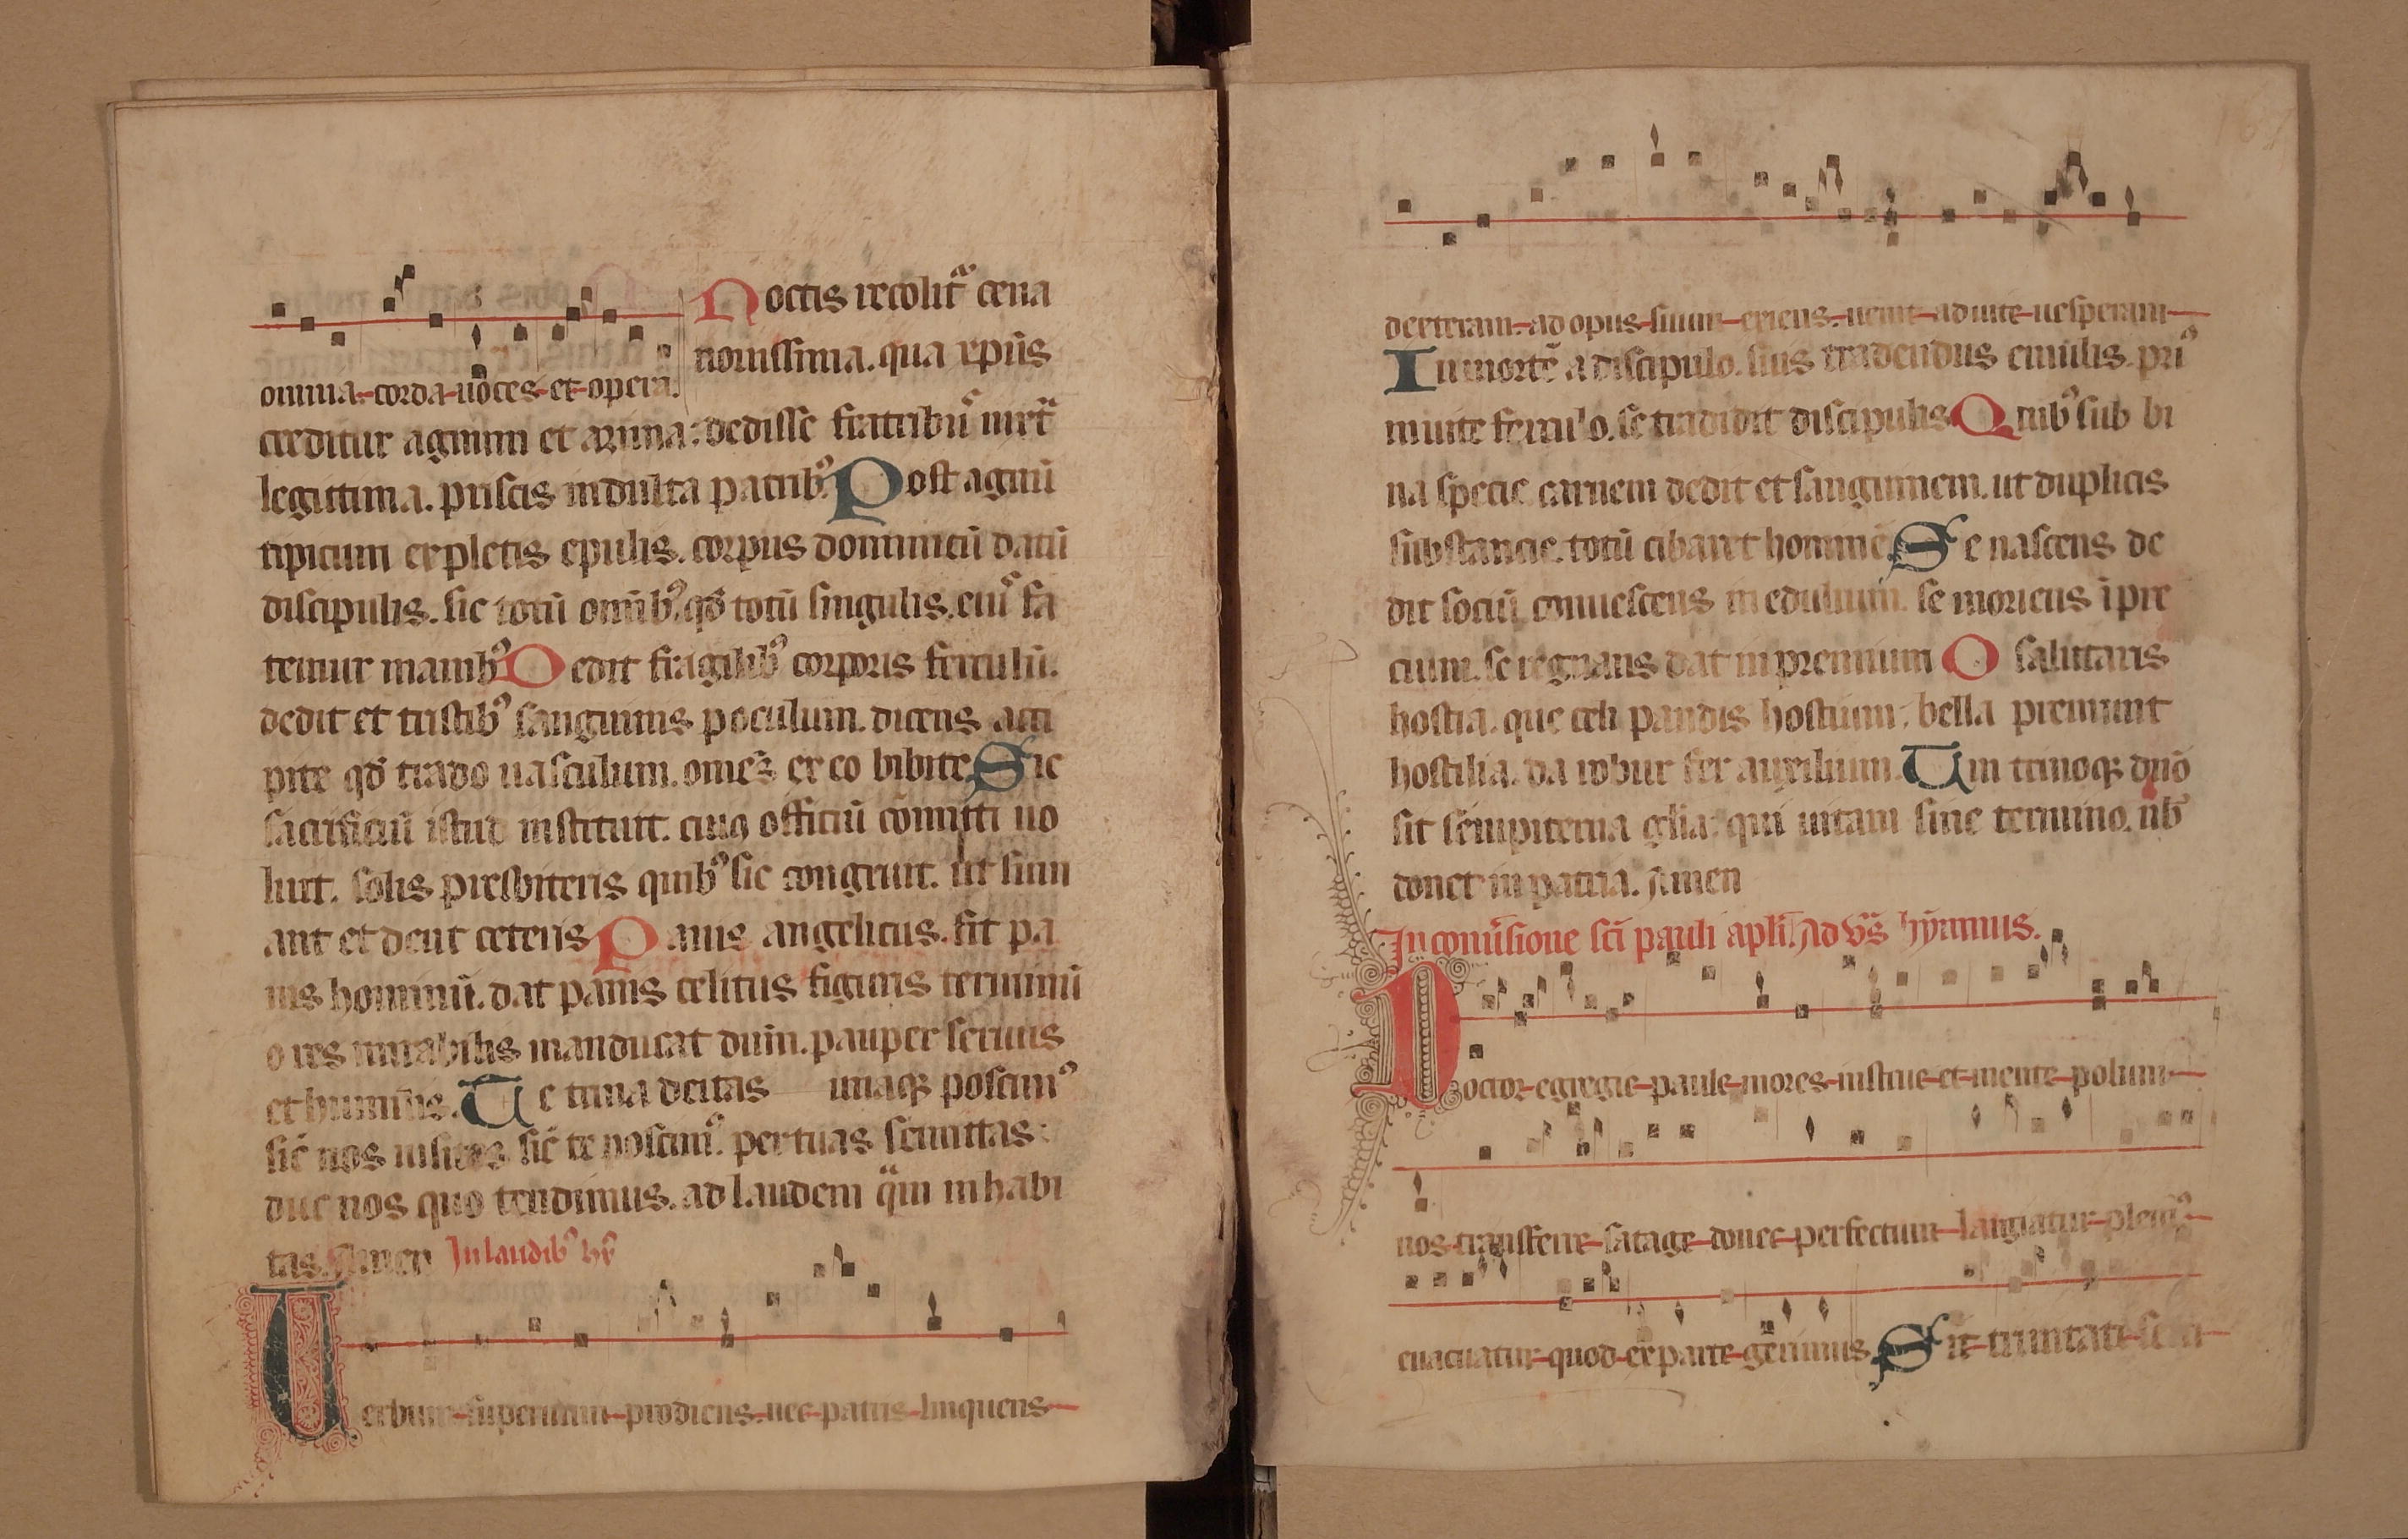 omnia. corda uoces et opera.
Noctis recolit᷑ cena
nouissima. qua xp̄us
creditur agnum et azima. dedisse fratribus iuxta
legittima. priscis indulta patribꝰ Post agnū
tipicum expletis epulis. corpus dominicū datū
discipulis. sic totū omībꝰ qđ totū singulis. eiuꝰ fa
temur manibꝰ Dedit fragilibꝰ corporis ferculū.
dedit et tristibꝰ sanguinis poculum. dicens acci
pite qđ trado uasculum. om̄es ex eo bibite Sic
sacrificiū istud instituit. cuiꝰ officiū cōmitti uo
luit. solis presbiteris quibꝰ sic congruit. ut sum
ant et dent ceteris Panis angelicus. fit pa
nis hominū. dat panis celitus figuris terminū
o res mirabilis manducat dūm. pauper seruus
et humilis. Te trina deitas unaqꝫ poscimꝰ
sic nos uisites sic te poscimꝰ. per tuas semitas
duc nos quo tendimus. ad laudem quā inhabi
tas. Amen In laudibꝰ hȳ
Uerbum supernum prodiens. nec patris linquens
167
dexteram. ad opus suum exiens. uenit ad uite uesperam
In mortē a discipulo. suis tradendus emulis. priꝰ
in uite ferculo. se tradidit discipulis Quibꝰ sub bi
na specie carnem dedit et sanguinem. ut duplicis
substancie. totū cibaret hominē Se nascens de
dit sociū conuescens in edulium. se moriens ī pre
cium. se regnans dat in premium O salutaris
hostia. que celi pandis hostium. bella premunt
hostilia. da robur fer auxilium. Uni trinoqꝫ dn̄o
sit sempiterna gl̄ia qui uitam sine termino. nōb
donet in patria. Amen
In conuersione sc̄i pauli apl̄i Ad vs̄ hȳmnus.
Doctor egregie paule mores instrue et mente polum
nos transferre satage donec perfectum largiatur pleniꝰ
euacuatur quod ex parte gerimus Sit trinitati sem